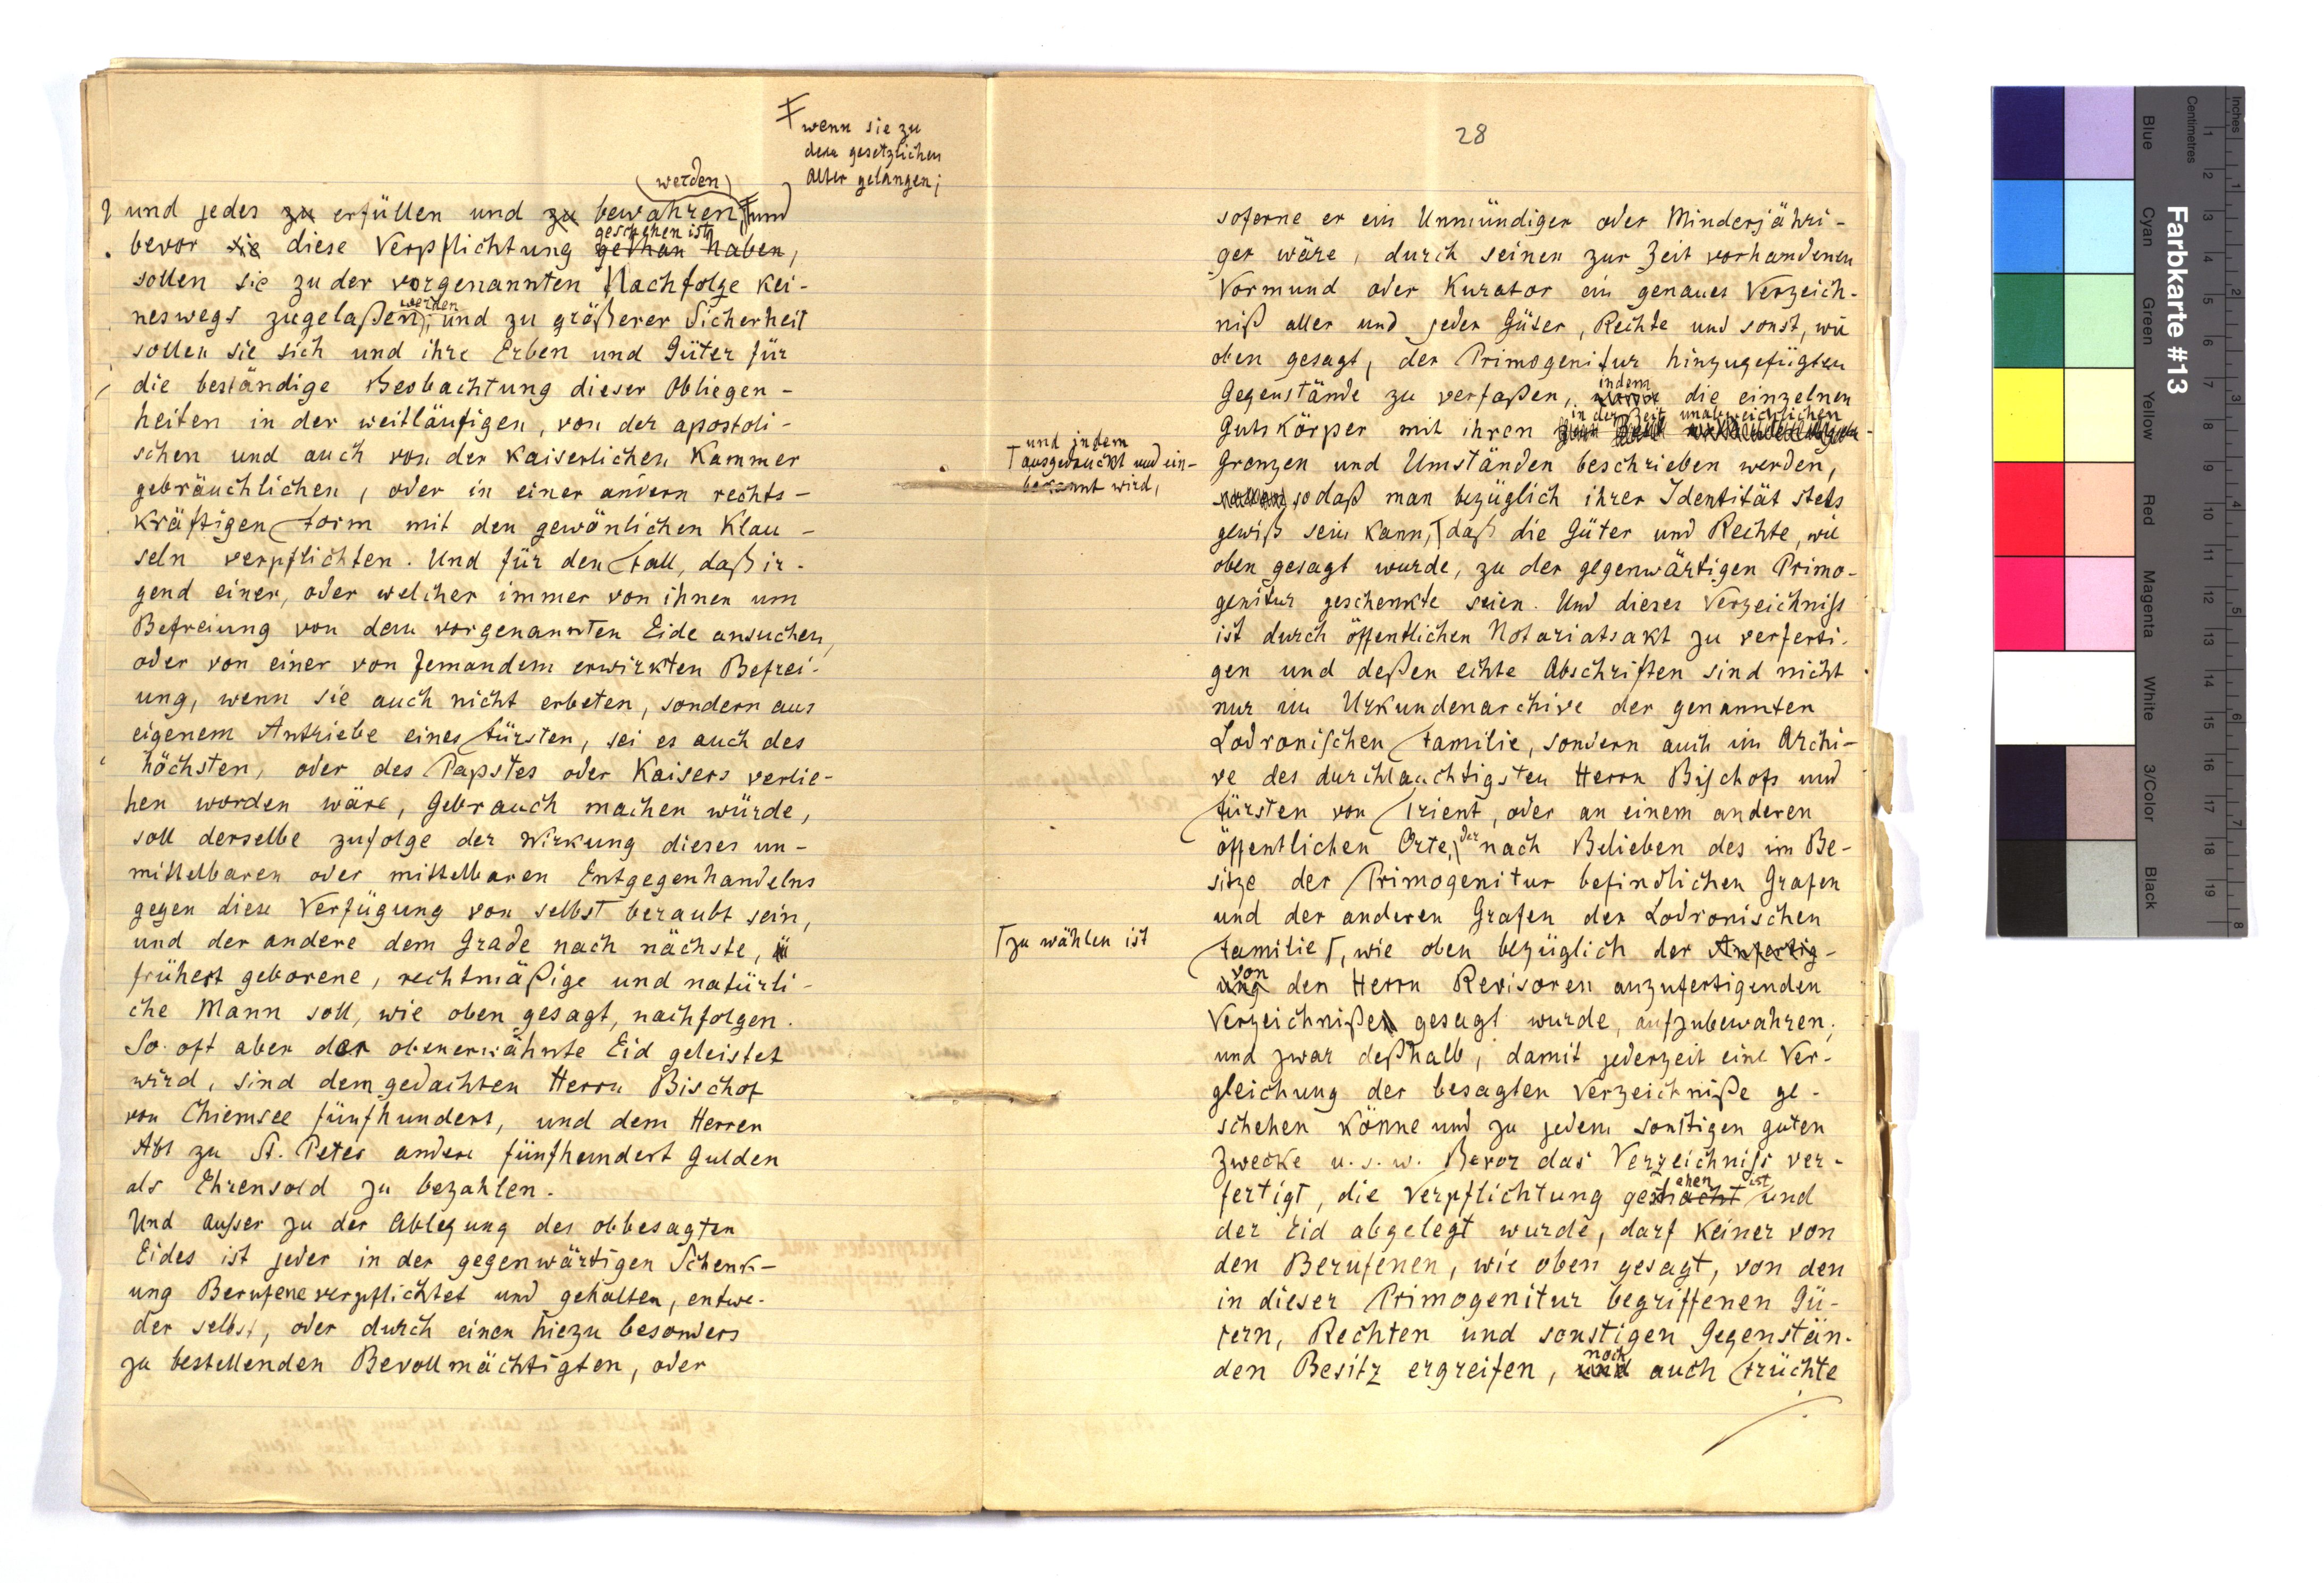 Ŧ wenn sie zu
dem gesetzlichen
Alter gelangen;
(werden)
und jedes zu erfüllen und zu bewahren Ŧ und
geschehen ist
bevor sie diese Verpflichtung gethan haben,
sollen sie zu der vorgenannten Nachfolge kei-
werden
neswegs zugelaßen; und zu größerer Sicherheit
sollen sie sich und ihre Erben und Güter für
die beständige Beobachtung dieser Obliegen-
heiten in der weitläufigen, von der apostoli-
schen und auch von der Kaiserlichen Kammer
gebräuchlichen, oder in einer andern rechts-
kräftigen Form mit den gewönlichen Klau-
seln verpflichten. Und für den Fall, daß ir-
gend einer, oder welcher immer von ihnen um
Befreiung von dem vorgenannten Eide ansuchen,
oder von einer von Jemandem erwirkten Befrei-
ung, wenn sie auch nicht erbeten, sondern aus
eigenem Antriebe eines Fürsten, sei es auch des
höchsten, oder des Papstes oder Kaisers verlie-
hen worden wäre, Gebrauch machen würde,
soll derselbe zufolge der Wirkung dieses un-
mittelbaren oder mittelbaren Entgegenhandelns
gegen diese Verfügung von selbst beraubt sein,
und der andere dem Grade nach nächste,
frühest geborene, rechtmäßige und natürli-
che Mann soll, wie oben gesagt, nachfolgen.
So oft aber der obenerwähnte Eid geleistet
wird, sind dem gedachten Herrn Bischof
von Chiemsee fünfhundert, und dem Herren
Abt zu St. Peter andere fünfhundert Gulden
als Ehrensold zu bezahlen.
Und ausser zu der Ablegung des obbesagten
Eides ist jeder in der gegenwärtigen Schenk-
ung Berufene verpflichtet und gehalten, entwe-
der selbst, oder durch einen hiezu besonders
zu bestellenden Bevollmächtigten, oder
28
soferne er ein Unmündiger oder Minderjähri-
ger wäre, durch seinen zur Zeit vorhandenen
Vormund oder Kurator ein genaues Verzeich-
niß aller und jeder Güter, Rechte und sonst, wie
oben gesagt, der Primogenitur hinzugefügten
indem
Gegenstände zu verfaßen, die einzelnen
in der Zeit unabweichlichen
Gutskörper mit ihren
und indem
Ꞁ ausgedruckt und ein-
bekannt wird,
Grenzen und Umständen beschrieben werden,
sodaß man bezüglich ihrer Identität stets
gewiß sein kann, Ꞁ daß die Güter und Rechte, wie
oben gesagt wurde, zu der gegenwärtigen Primo-
genitur geschenkte seien. Und dieses Verzeichniß
ist durch öffentlichen Notariatsakt zu verferti-
gen und deßen echte Abschriften sind nicht
nur im Urkundenarchive der genannten
Lodronischen Familie, sondern auch im Archi-
ve des durchlauchtigsten Herrn Bischofs und
Fürsten von Trient, oder an einem anderen
der
öffentlichen Orte, nach Belieben des im Be-
sitze der Primogenitur befindlichen Grafen
und der anderen Grafen der Lodronischen
Ꞁ zu wählen ist
Familie Ꞁ, wie oben bezüglich der Anfertig-
von
ung den Herrn Revisoren anzufertigenden
Verzeichniße gesagt wurde, aufzubewahren;
und zwar deßhalb, damit jederzeit eine Ver-
gleichung der besagten Verzeichniße ge-
schehen könne und zu jedem sonstigen guten
Zwecke u. s. w. Bevor das Verzeichniß ver-
ehen ist
fertigt, die Verpflichtung gemacht und
der Eid abgelegt wurde, darf keiner von
den Berufenen, wie oben gesagt, von den
in dieser Primogenitur begriffenen Gü-
tern, Rechten und sonstigen Gegenstän-
noch
den Besitz ergreifen, und auch Früchte
Farbkarte #13
Blue
Cyan
Green
Yellow
Red
Magenta
White
3/Color
Black
Centimetres
1 2 3 4 5 6 7 8 9 10 11 12 13 14 15 16 17 18 19
Inches
1 2 3 4 5 6 7 8